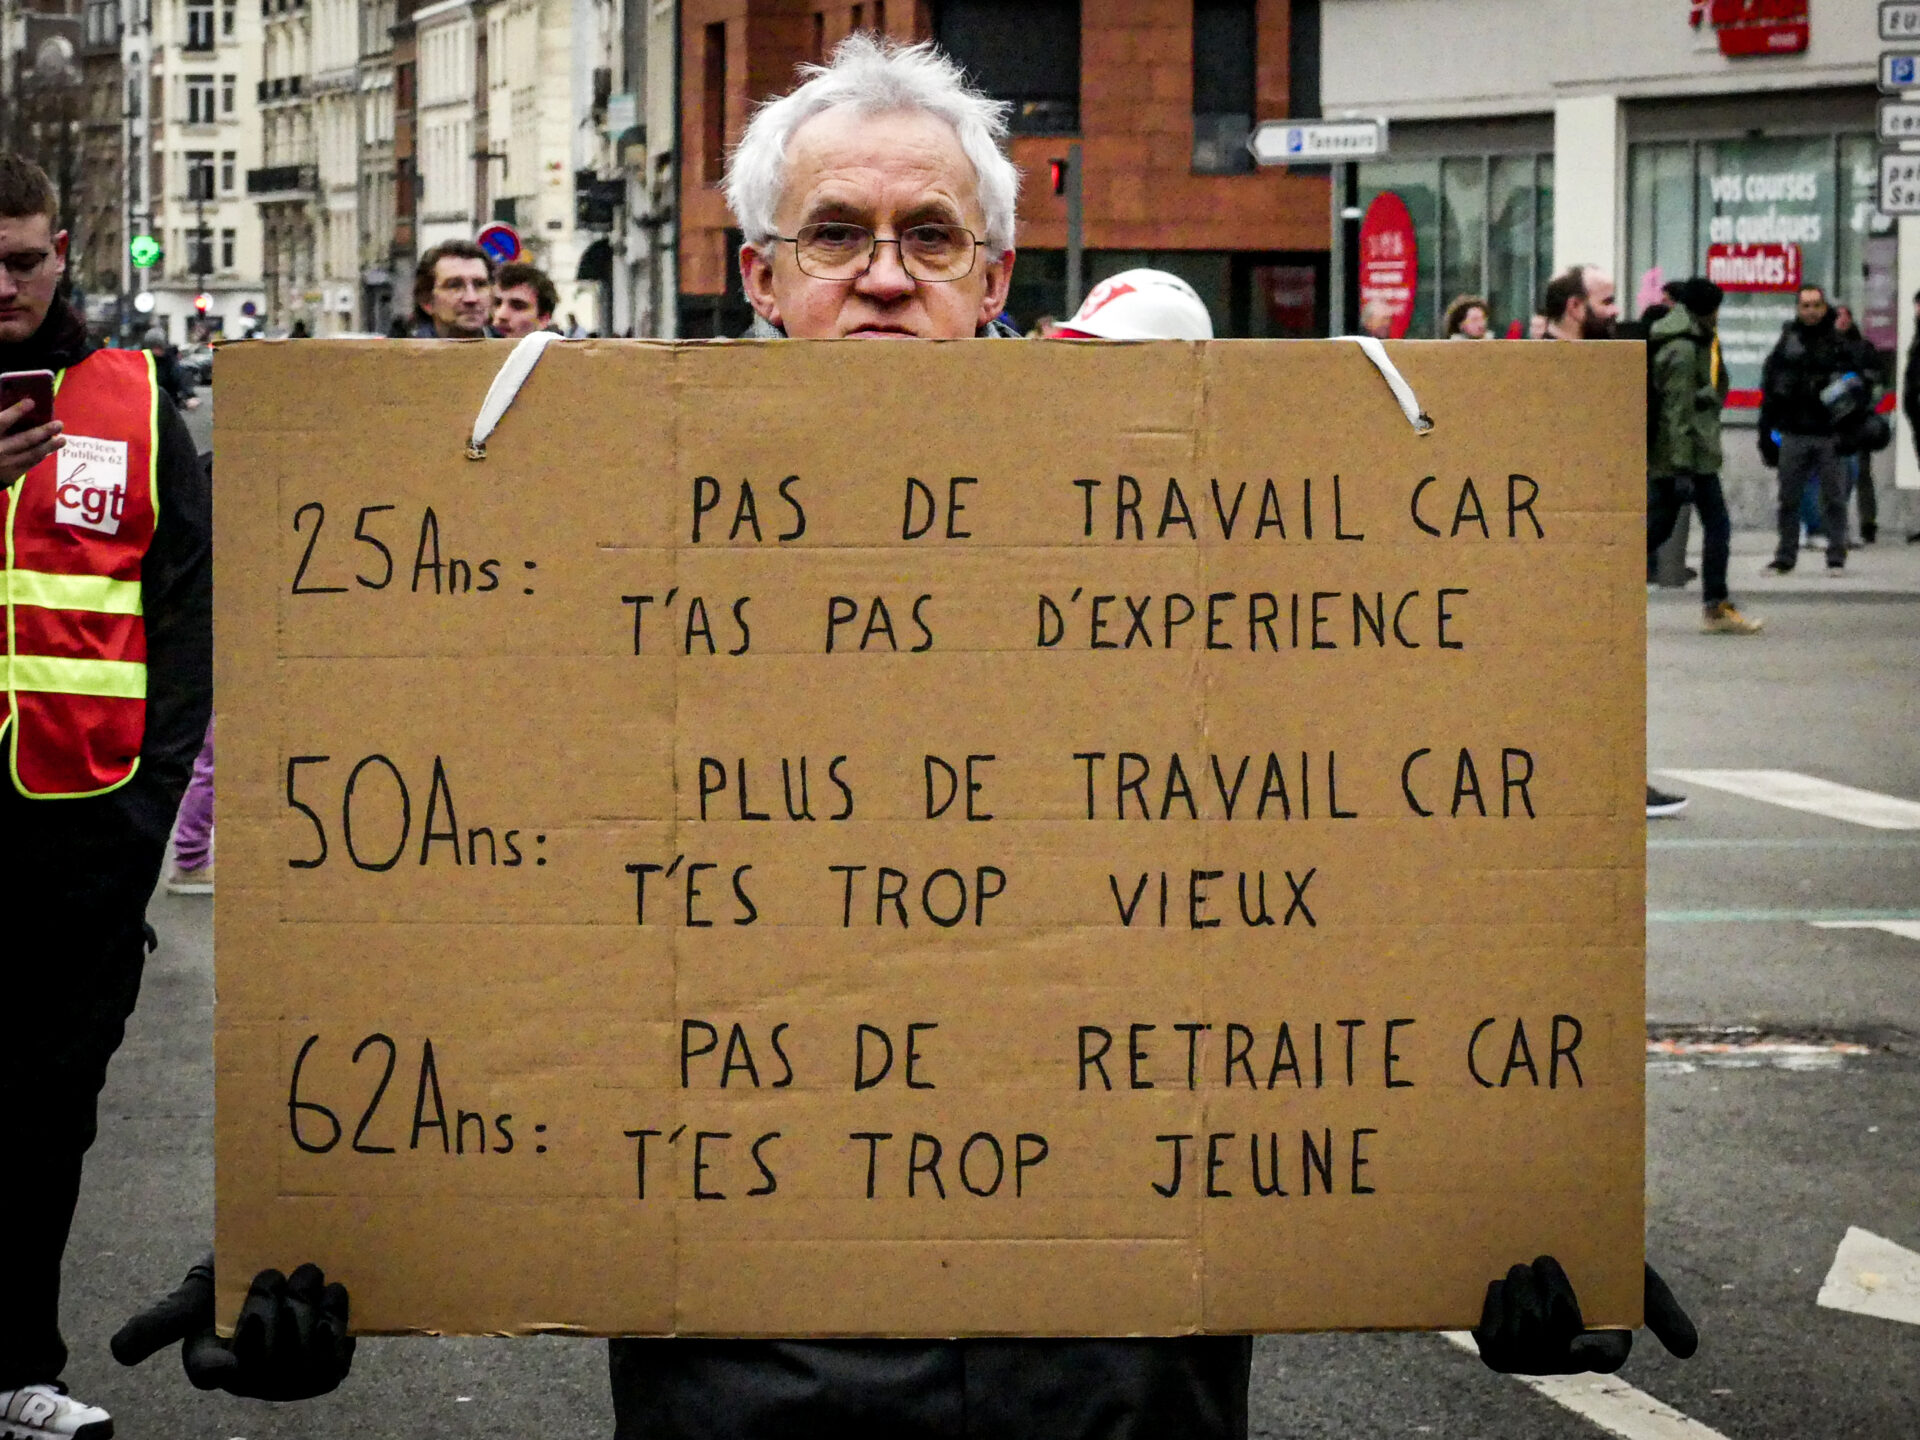 25Ans: PAS DE TRAVAIL CAR
T'AS PAS D'EXPERIENCE
50Ans: PLUS DE TRAVAIL CAR
T'ES TROP VIEUX
62Ans: PAS DE RETRAITE CAR
T'ES TROP JEUNE
Services
Publics 62
la
cgt
P Tanneurs
vos courses
en quelques
minutes!
P